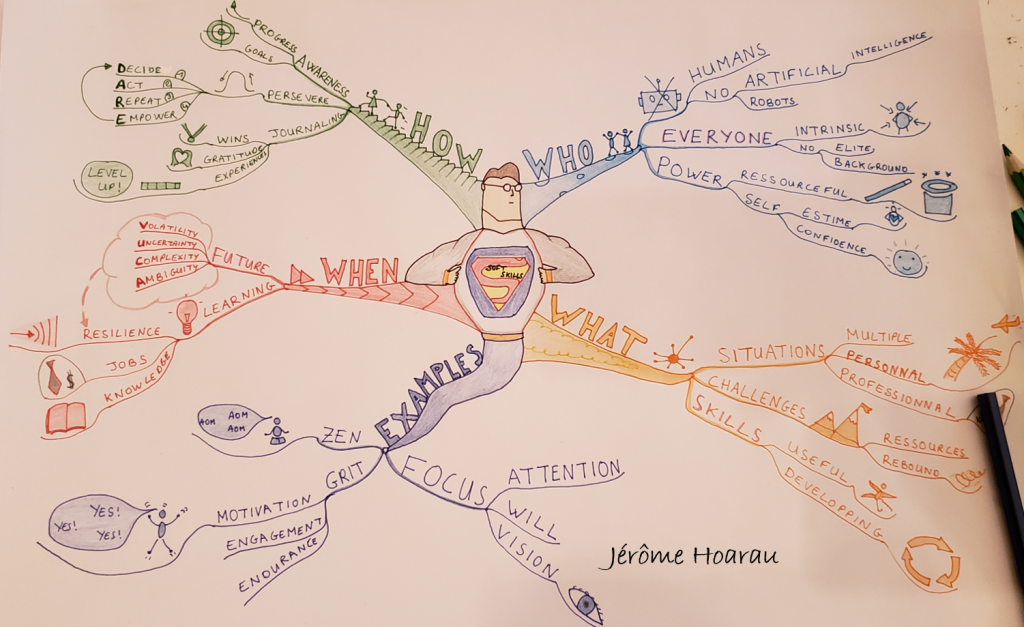 SOFT
SKILLS
HOW
AWARENESS
PROGRESS
GOALS
PERSEVERE
DECIDE 1
ACT 2
REPEAT 3
EMPOWER 4
JOURNALING
WINS
GRATITUDE
EXPERIENCES
LEVEL
UP!
WHO
HUMANS
NO ARTIFICIAL INTELLIGENCE
ROBOTS
EVERYONE
INTRINSIC
NO ELITE
BACKGROUND
POWER
RESSOURCEFUL
SELF ESTIME
CONFIDENCE
WHEN
FUTURE
VOLATILITY
UNCERTAINTY
COMPLEXITY
AMBIGUITY
LEARNING
RESILIENCE
JOBS
$
KNOWLEDGE
WHAT
SITUATIONS
MULTIPLE
PERSONNAL
PROFESSIONNAL
CHALLENGES
RESSOURCES
REBOUND
SKILLS
USEFUL
DEVELOPPING
EXAMPLES
ZEN
AOM
AOM
AOM
GRIT
MOTIVATION
YES!
YES!
YES!
ENGAGEMENT
ENDURANCE
FOCUS
ATTENTION
WILL
VISION
Jérôme Hoarau